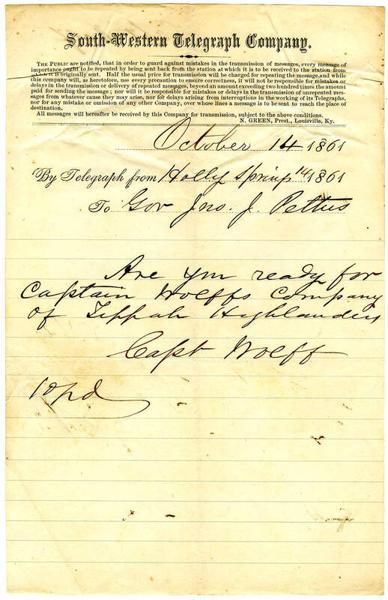 South-Western Telegraph Company.
THE PUBLIC are notified, that in order to guard against mistakes in the transmission of messages, every message of
importance ought to be repeated by being sent back from the station at which it is to be received to the station from
which it is originally sent. Half the usual price for transmission will be charged for repeating the message, and while
this company will, as heretofore, use every precaution to ensure correctness, it will not be responsible for mistakes or
delays in the transmission or delivery of repeated messages, beyond an amount exceeding two hundred times the amount
paid for sending the message; nor will it be responsible for mistakes or delays in the transmission of unrepeated mes-
sages from whatever cause they may arise, nor for delays arising from interruptions in the working of its Telegraphs,
nor for any mistake or omission of any other Company, over whose lines a message is to be sent to reach the place of
destination.
All messages will hereafter be received by this Company for transmission, subject to the above conditions.
N. GREEN, Prest., Louisville, Ky.
October 14 1861
By Telegraph from Holly Springs 14 1861
To Gov Jno. J. Pettus
Are you ready for
Captain Wolffs Company
of Tippah Highlanders
Capt Wolff
10 pd